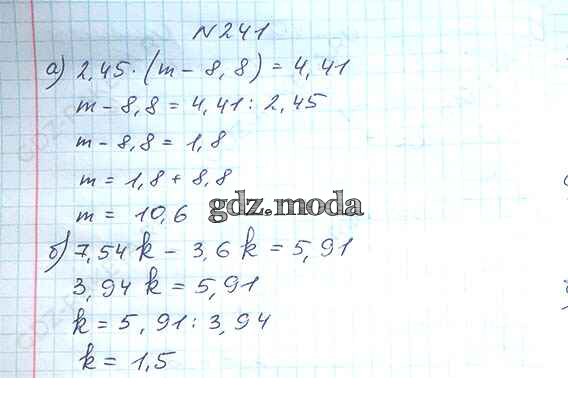 N 241
а) 2,45 · (m - 8,8) = 4,41
m - 8,8 = 4,41 : 2,45
m - 8,8 = 1,8
m = 1,8 + 8,8
m = 10,6
gdz.moda
б) 7,54 k - 3,6 k = 5,91
3,94 k = 5,91
k = 5,91 : 3,94
k = 1,5